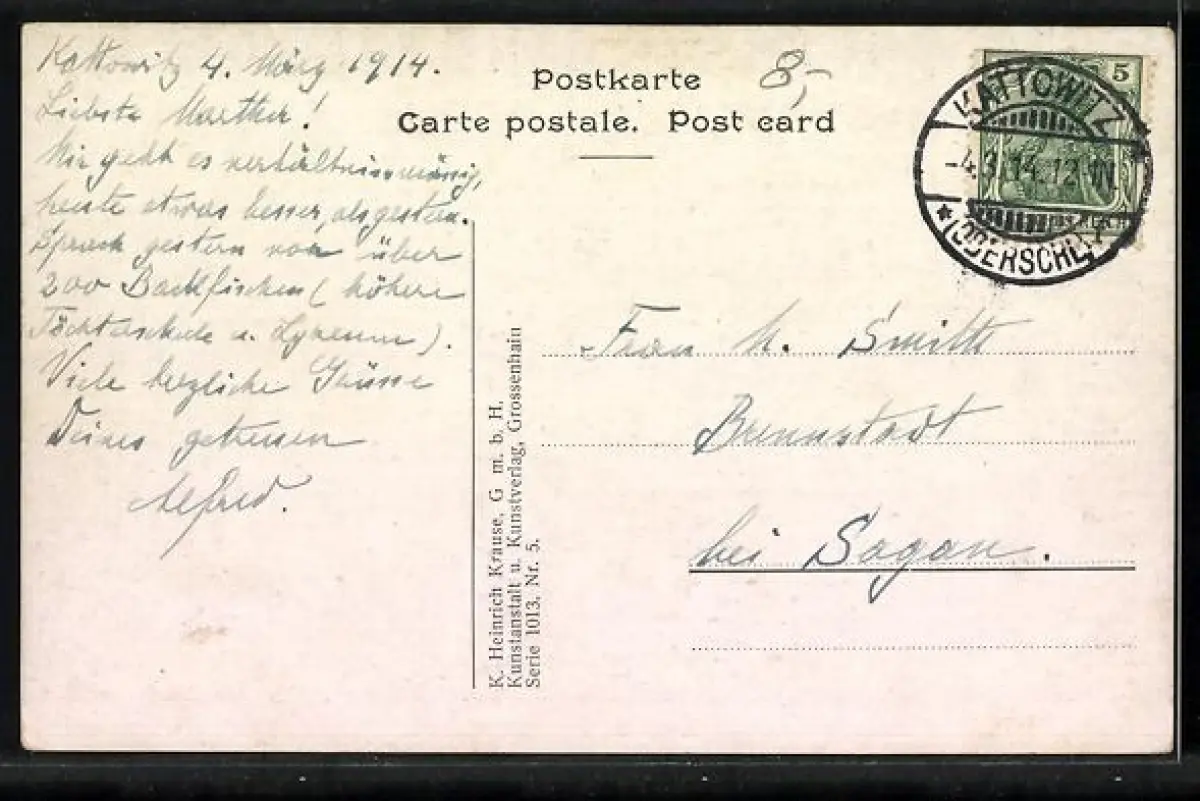 Kattowitz 4. März 1914.
Liebste Marthe!
Mir geht es verhältnismässig,
heute etwas besser, als gestern.
Sprach gestern vor über
200 Backfischen (höhere
Töchterschule u. Lyzeum).
Viele herzliche Grüsse
Deines getreuen
Alfred.
Postkarte
8,-
Carte postale. Post card
5
KATTOWITZ
-4.3.14.12-1N.
* (OBERSCHL.)
K. Heinrich Krause, G m. b. H.
Kunstanstalt u. Kunstverlag, Grossenhain
Serie 1013. Nr. 5.
Frau M. Smith
Brennstadt
bei Sagan.